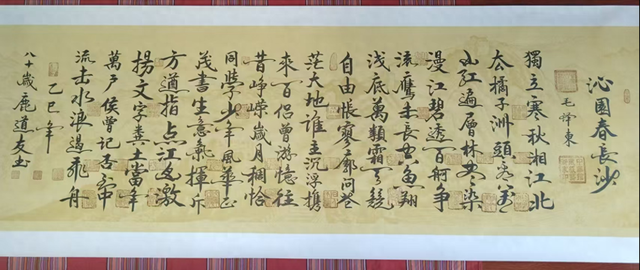 沁園春長沙
毛澤東
獨立寒秋湘江北
去橘子洲頭看萬
山红遍層林尽染
漫江碧透百舸争
流鷹击長空魚翔
浅底萬類霜天競
自由悵寥廓問苍
茫大地谁主沉浮携
来百侣曾游憶往
昔崢嶸歲月稠恰
同學少年風華正
茂書生意氣揮斥
方遒指点江山激
揚文字糞土當年
萬户侯曾记否到中
流击水浪遏飛舟
乙巳年
八十歲鹿道友书